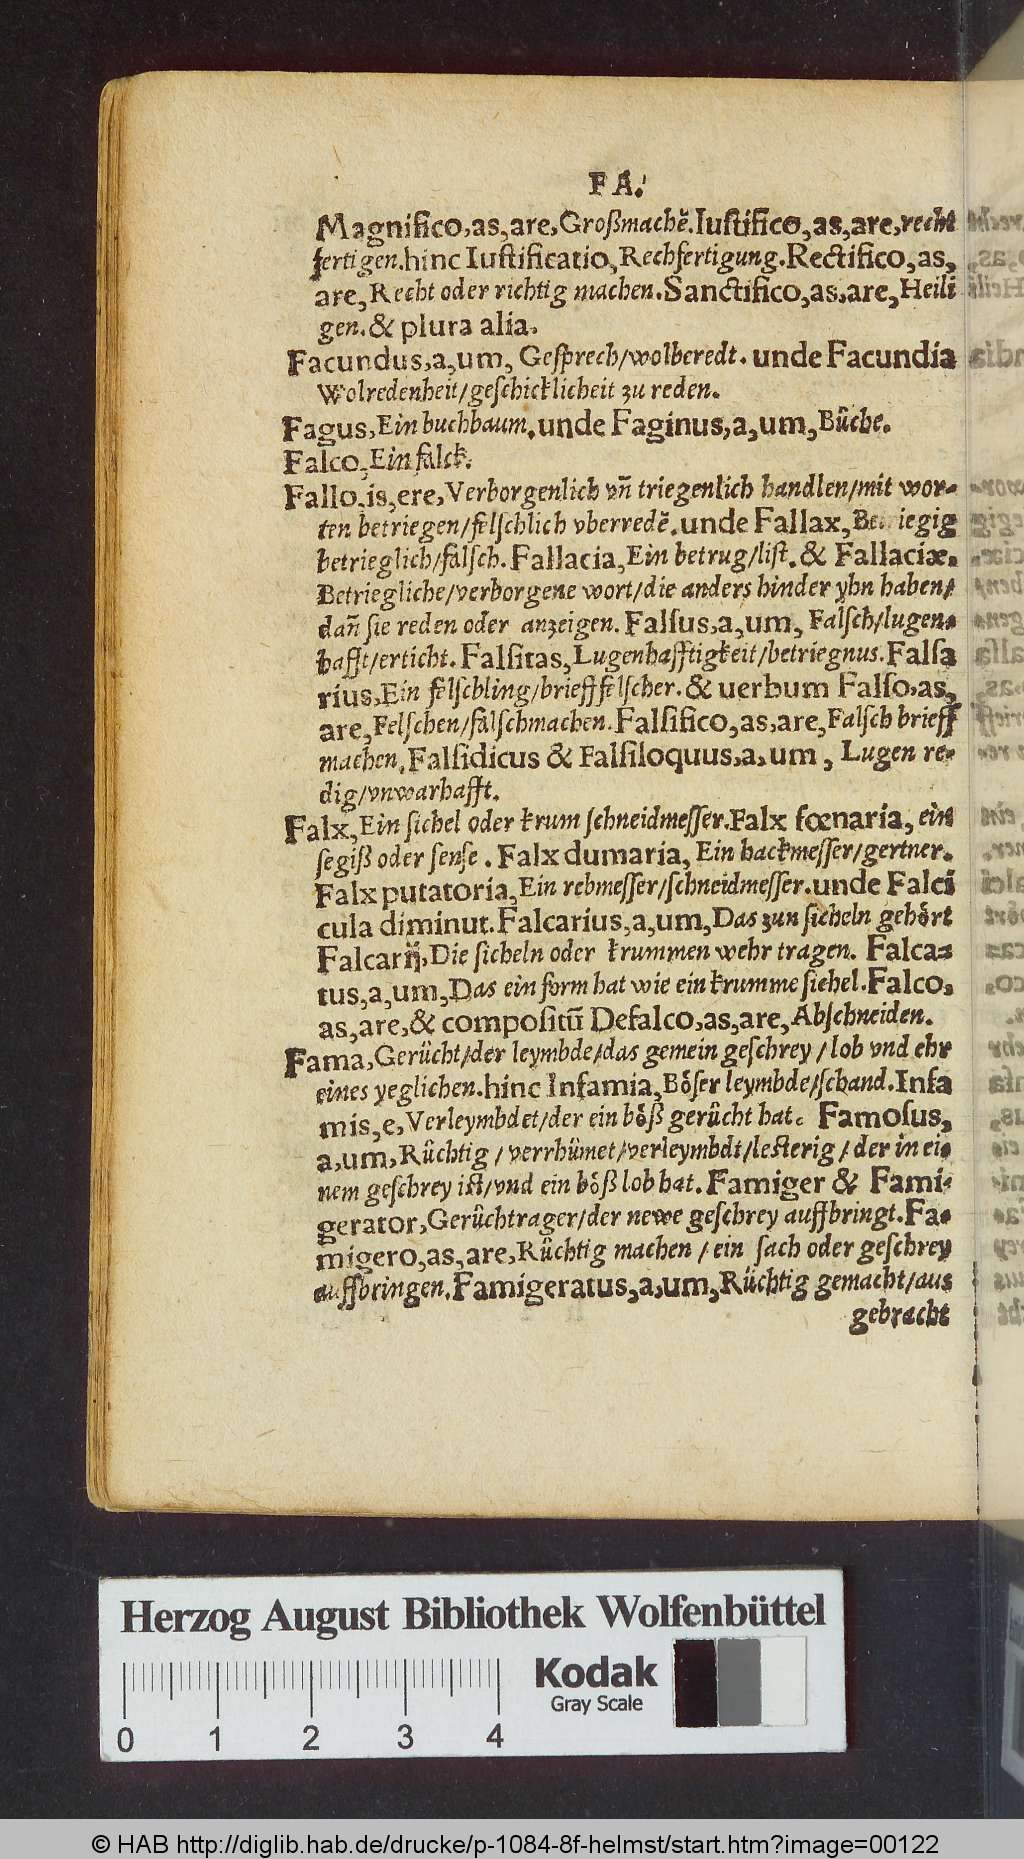 FA.
Magnifico,as,are,Großmachẽ.Iuſtifico,as,are,recht
fertigen.hinc Iuſtificatio,Rechfertigung.Rectifico,as,
are,Recht oder richtig machen.Sanctifico,as,are,Heili
gen.& plura alia.
Facundus,a,um, Geſprech/wolberedt. unde Facundia
Wolredenheit/geſchicklicheit zu reden.
Fagus,Ein buchbaum.unde Faginus,a,um,Bůche.
Falco,Ein falck.
Fallo,is,ere,Verborgenlich vñ triegenlich handlen/mit wor-
ten betriegen/felſchlich vberredẽ.unde Fallax,
betrieglich/falſch.Fallacia,Ein betrug/liſt.& Fallaciæ.
Betriegliche/verborgene wort/die anders hinder yhn haben/
dañ ſie reden oder anzeigen.Falſus,a,um, Falſch/lugen-
hafft/erticht.Falſitas,Lugenhafftigkeit/betriegnus.Falſa
rius,Ein felſchling/brieff felſcher.& uerbum Falſo,as,
are,Felſchen/falſchmachen.Falſifico,as,are,Falſch brieff
machen.Falſidicus & Falſiloquus,a,um, Lugen re-
dig/vnwarhafft.
Falx,Ein ſichel oder krum ſchneidmeſſer.Falx fœnaria,ein
ſegiß oder ſenſe. Falx dumaria, Ein hackmeſſer/gertner.
Falx putatoria,Ein rebmeſſer/ſchneidmeſſer.unde Falci
cula diminut.Falcarius,a,um,Das zun ſicheln gehört
Falcarij,Die ſicheln oder krummen wehr tragen. Falca-
tus,a,um,Das ein form hat wie ein krumme ſichel.Falco,
as,are,& compoſitũ Defalco,as,are,Abſchneiden.
Fama,Gerücht/der leymbde/das gemein geſchrey/lob vnd ehr
eines yeglichen.hinc Infamia,Böſer leymbde/ſchand.Infa
mis,e,Verleymbdet/der ein böß gerücht hat. Famoſus,
a,um,Rüchtig/verrhümet/verleymbdt/leſterig/der in ei-
nem geſchrey iſt/vnd ein böß lob hat.Famiger & Fami-
gerator,Gerüchtrager/der newe geſchrey auffbringt.Fa-
migero,as,are,Rüchtig machen/ein ſach oder geſchrey
auffbringen.Famigeratus,a,um,Rüchtig gemacht/aus
gebracht
Herzog August Bibliothek Wolfenbüttel
Kodak
Gray Scale
0 1 2 3 4
© HAB http://diglib.hab.de/drucke/p-1084-8f-helmst/start.htm?image=00122